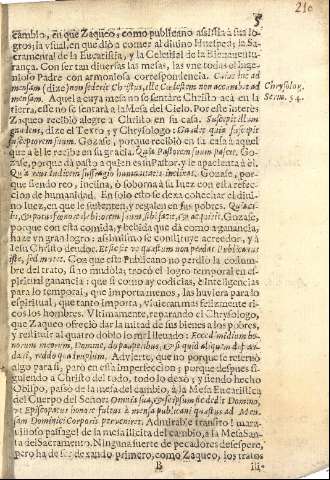 5
210
cambio, en que Zaqueo, como publicano assistia a sus logros;
la vsual, en que dió a comer al diuino Huesped; la Sacramental
de la Eucaristia, y la Celestial de la Bienauenturança.
Con ser tan diuersas las mesas, las vne todas el
Padre con armoniosa correspondencia.
mensam (dize) non federit Christus, ille Caelestem non accumbet ad
mensam. Aquel a cuya mesa no se sentáre Christo acà en la
tierra, esse no se sentarà a la Mesa del Cielo. Por este interès
Zaqueo recibiò alegre a Christo en su casa. Suscepit illum
gaudens, dize el Texto; y Chrysologo: Gaudet quia suscepit
susceptorem suum. Gozase, porque recibiò en su casa à aquel
que a èl le recibe en su gracia. Quia Pastorem suum pascit. Gozase,
porque dà pasto a quien es su Pastor, y le apacienta à èl.
Quia reus Iudicem suffragio humanitatis inclinat. Gozase, porque
siendo reo, inclina, ò soborna à su Iuez con esta refeccion
de humanidad. En solo esto se dexa cohechar el diuino
Iuez, en que le sustenten, y regalen en sus pobres.
Gozase,
porque con esta comida, y bebida que dà como a ganancia,
haze vn gran logro; assimismo se constituye acreedor, y à
Iesu Christo deudor.
Cosa que este Publicano no perdiò la costumbre
del trato, si no mudóla; trocò el logro temporal en espiritual
ganancia: que si como ay codicias, è inteligencias
para lo temporal, que importa menos, las huviera para lo
espiritual, que tanto importa, vivieran mas felizmente ricos
los hombres. Vltimamente, reparando el Chrysologo,
que Zaqueo ofreciò dar la mitad de sus bienes a los pobres,
y restituir al quatro doblo lo mal lleuado: Ecce dimidium bonorum
meorum, Domine, do pauperibus, & si quid aliquem defraudavi,
reddo quadruplum. Advierte, que no porque se reservò
algo para sì, parò en essa imperfeccion; porque despues siguiendo
a Christo del todo, todo lo dexò; y siendo hecho
Obispo, passò de la mesa del cambio, à la Mesa Eucaristica
del Cuerpo del Señor: Omnia sua, & se ipsum se dedit Domino,
& Episcopatus honore fultus è mensa publicani quaestus ad Mensam
Dominici Corporis pervenit. Admirable transito! marauilloso
passage! de la mesa ilicita del cambio, a la Mesa Santa
del Sacramento. Ninguna fuerte de pecadores desespere,
pero ha de ser dexando primero, como Zaqueo, los tratos
B
ili-
Chrysolog.
Serm. 54.